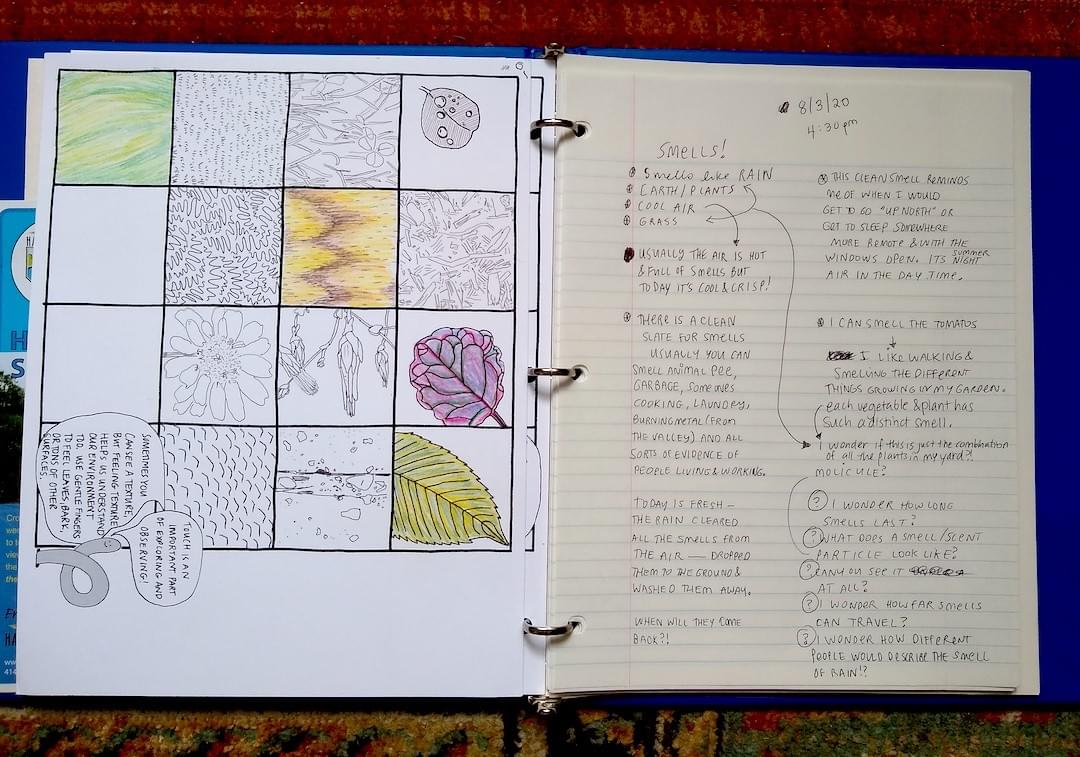 SOMETIMES YOU
CAN SEE A TEXTURE,
BUT FEELING TEXTURE
HELPS US UNDERSTAND
OUR ENVIRONMENT
TOO. USE GENTLE FINGERS
TO FEEL LEAVES, BARK,
OR TONS OF OTHER
SURFACES.
TOUCH IS AN
IMPORTANT PART
OF EXPLORING AND
OBSERVING!
8/3/20
4:30pm
SMELLS!
Smells like RAIN
EARTH/PLANTS
COOL AIR
GRASS
USUALLY THE AIR IS HOT
& FULL OF SMELLS BUT
TODAY IT'S COOL & CRISP!
THERE IS A CLEAN
SLATE FOR SMELLS
USUALLY YOU CAN
SMELL ANIMAL PEE,
GARBAGE, SOMEONES
COOKING, LAUNDRY,
BURNING METAL (FROM
THE VALLEY) AND ALL
SORTS OF EVIDENCE OF
PEOPLE LIVING & WORKING.
TODAY IS FRESH –
THE RAIN CLEARED
ALL THE SMELLS FROM
THE AIR — DROPPED
THEM TO THE GROUND &
WASHED THEM AWAY.
WHEN WILL THEY COME
BACK?!
THIS CLEAN SMELL REMINDS
ME OF WHEN I WOULD
GET TO GO "UP NORTH" OR
GET TO SLEEP SOMEWHERE
MORE REMOTE & WITH THE
WINDOWS OPEN. ITS SUMMER NIGHT
AIR IN THE DAY TIME.
I CAN SMELL THE TOMATOS
I LIKE WALKING &
SMELLING THE DIFFERENT
THINGS GROWING IN MY GARDEN.
each vegetable & plant has
such a distinct smell.
I wonder if this is just the combination
of all the plants in my yard?!
MOLICULE?
? I WONDER HOW LONG
SMELLS LAST?
? WHAT DOES A SMELL/SCENT
PARTICLE LOOK LIKE?
? CAN YOU SEE IT
AT ALL?
? I WONDER HOW FAR SMELLS
CAN TRAVEL?
? I WONDER HOW DIFFERENT
PEOPLE WOULD DESCRIBE THE SMELL
OF RAIN!?